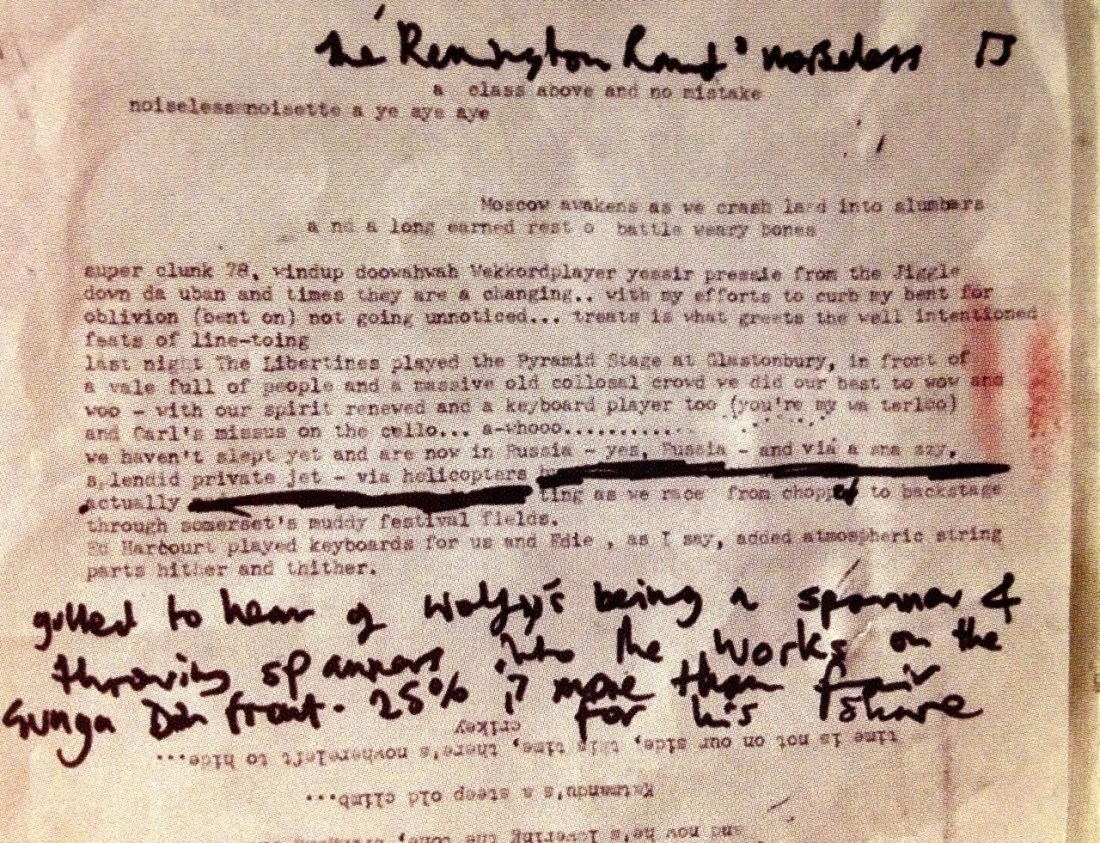 the 'Remington Rand' noiseless
a class above and no mistake
noiseless noisette a ye aye aye
Moscow awakens as we crash land into slumbers
a nd a long earned rest o battle weary bones
super clunk 78, windup doowahwah Wekkordplayer yessir pressie from the Jiggle
down da uban and times they are a changing.. with my efforts to curb my bent for
oblivion (bent on) not going unnoticed... treats is what greets the well intentioned
feats of line-toing
last night The Libertines played the Pyramid Stage at Glastonbury, in front of
a vale full of people and a massive old collosal crowd we did our best to wow and
woo - with our spirit renewed and a keyboard player too (you're my wa terloo)
and Carl's missus on the cello... a-whooo............
we haven't slept yet and are now in Russia - yes, Russia - and via a sna zzy,
splendid private jet - via helicopters
actually ting as we race from chopper to backstage
through somerset's muddy festival fields.
Ed Harcourt played keyboards for us and Edie , as I say, added atmospheric string
parts hither and thither.
gutted to hear of Wolfy's being a spanner &
throwing spanners into the works on the
Gunga Din front. 25% is more than fair
for his share
crikey
time is not on our side, this time, there's nowhereleft to hide...
Katmandu's a steep old climb...
and now he's lowering the tone,